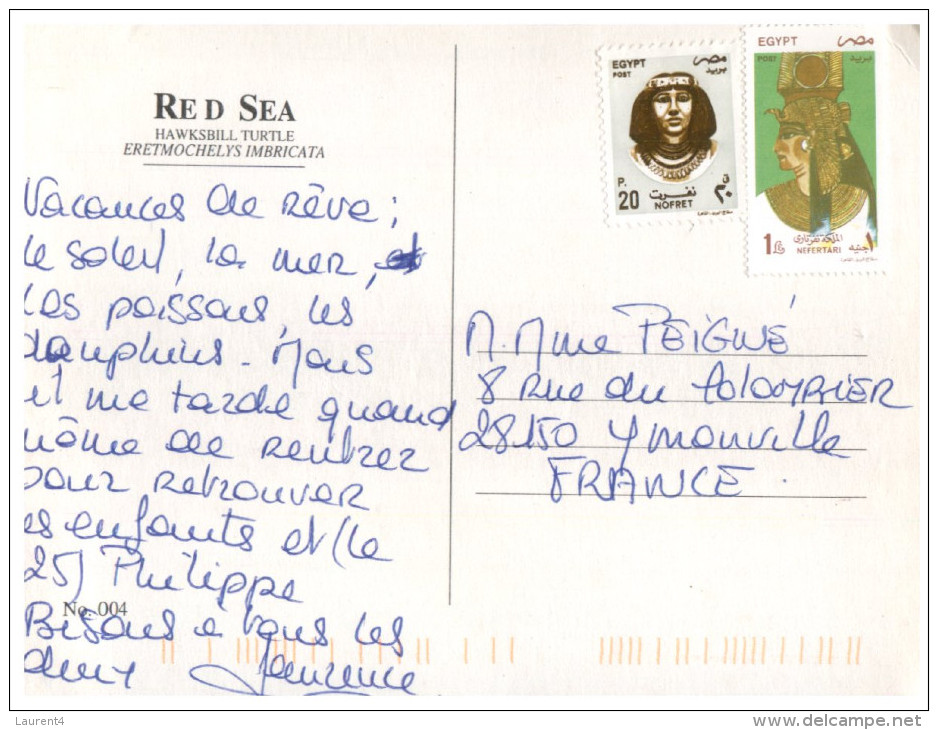 RED SEA
HAWKSBILL TURTLE
ERETMOCHELYS IMBRICATA
Vacances de rêve ;
le soleil, la mer,
les poissons, les
dauphins. Mais
il me tarde quand
même de rentrer
pour retrouver
les enfants et (le
25) Philippe
No. 004
Bisous à vous les
deux Laurence
EGYPT مصر
POST بريد
P. 20 ٢٠ ق
نفرت
NOFRET
EGYPT مصر
POST بريد
1 £ ١ جنيه
الملكة نفرتارى
NEFERTARI
M. Mme PEIGNÉ
8 Rue du
28150 Ymonville
FRANCE.
Laurent4
delcampe.net